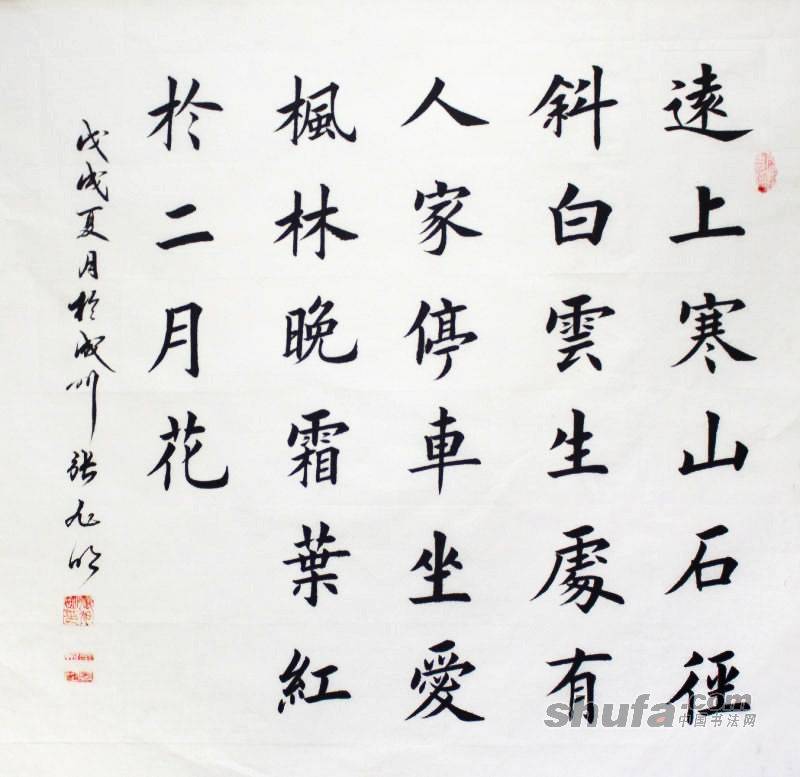 遠上寒山石徑
斜白雲生處有
人家停車坐愛
楓林晚霜葉紅
於二月花
戊戌夏月於成州張旭明
shufa.com
中国书法网